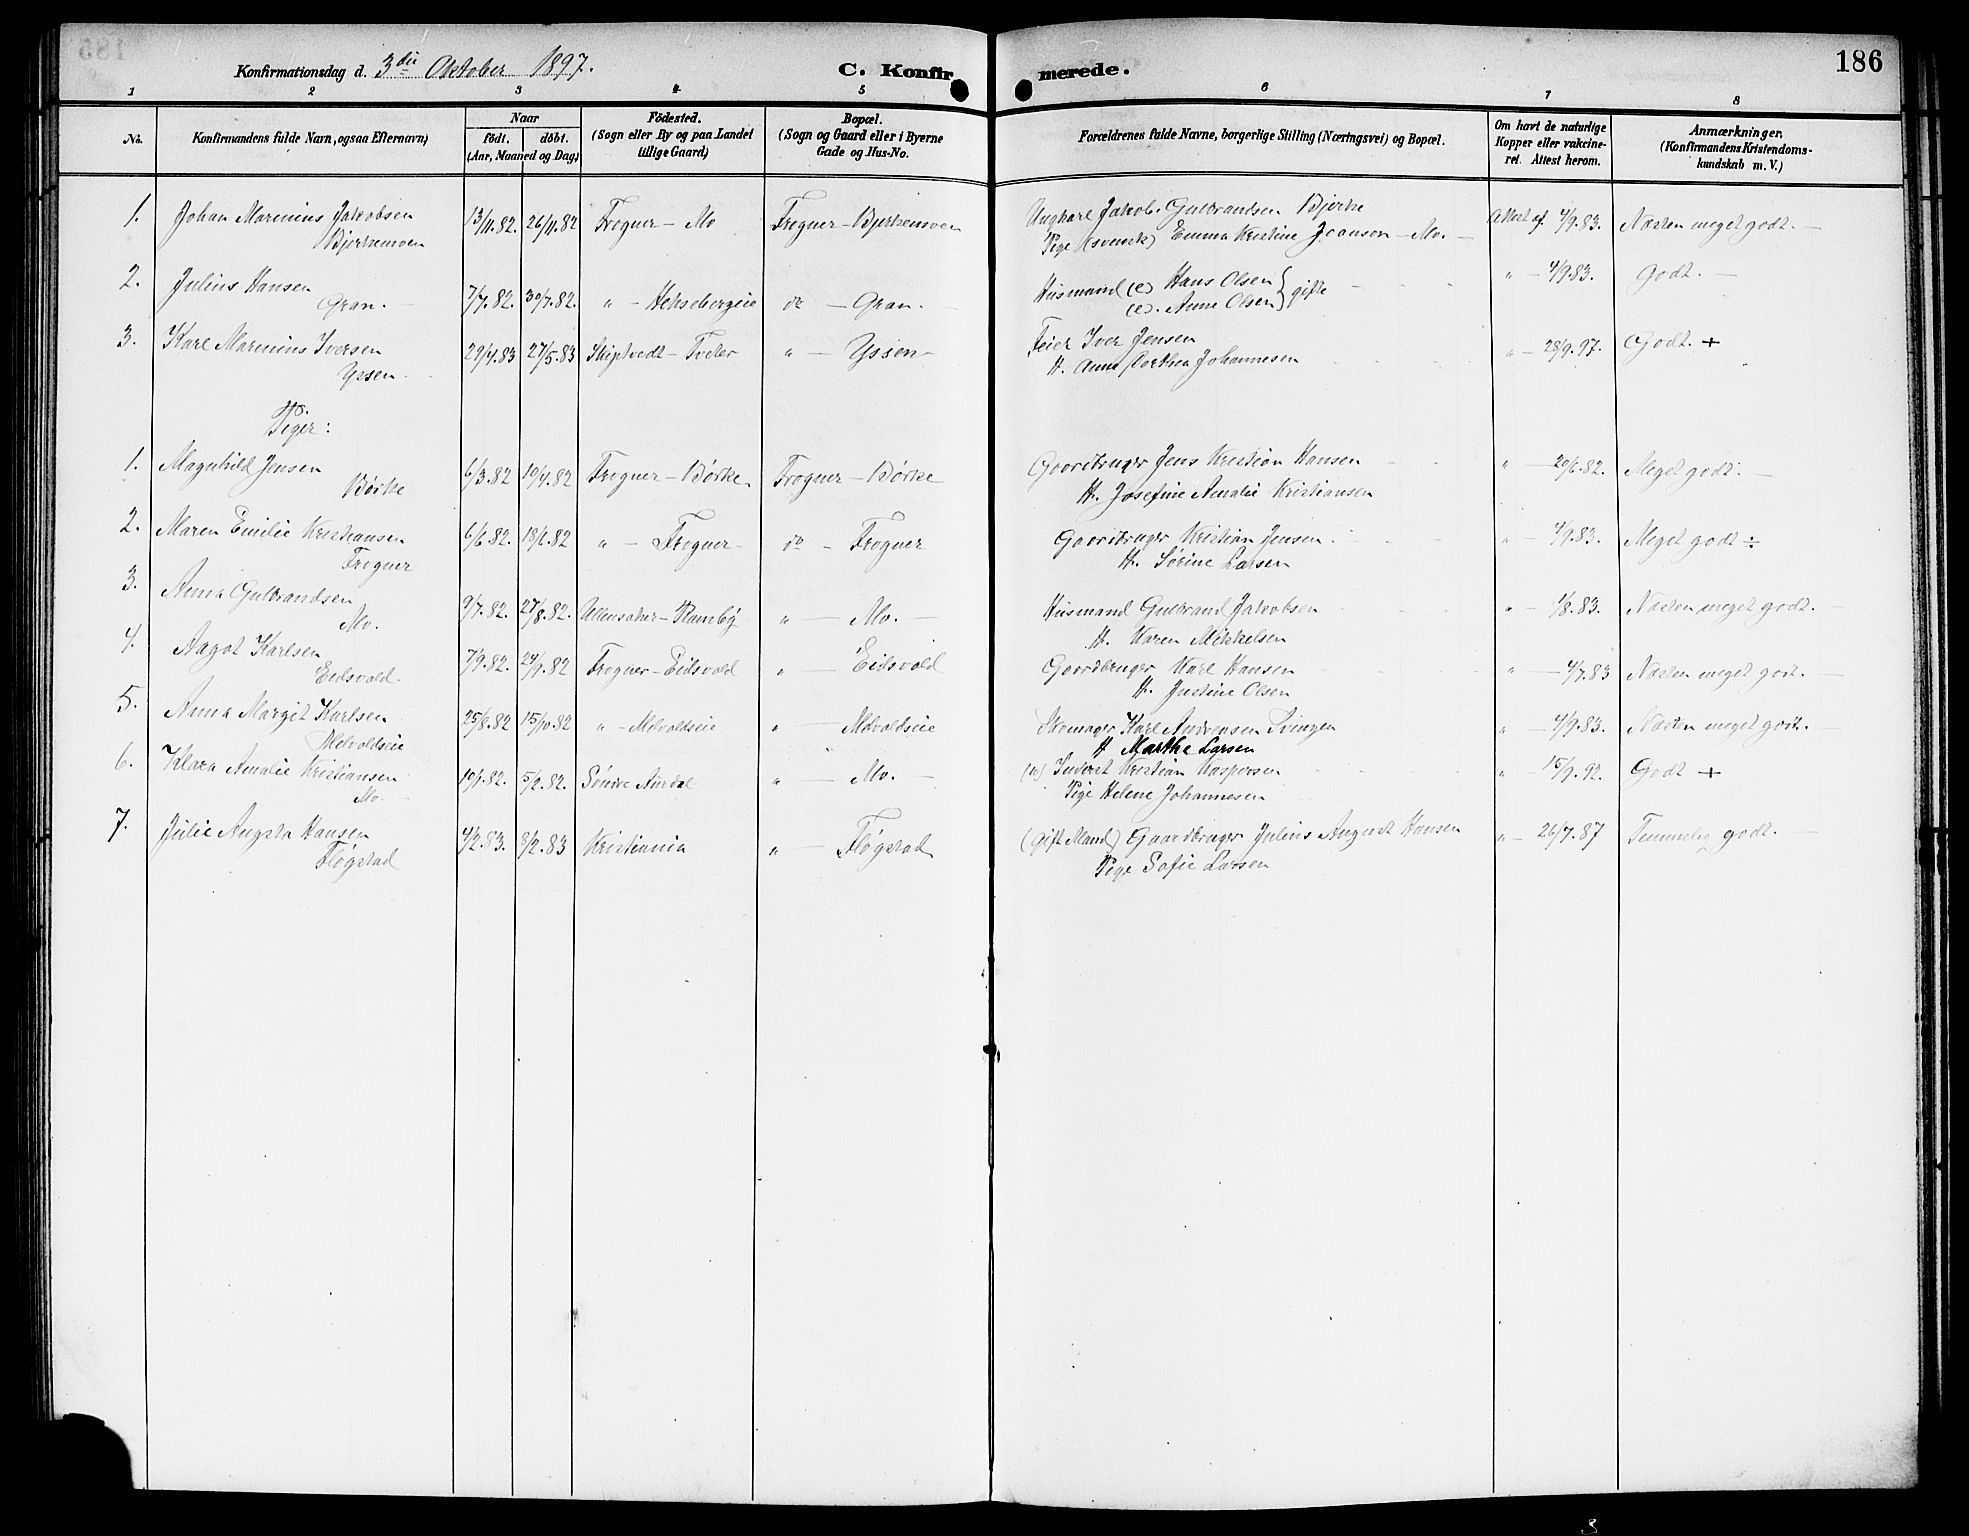 186
Konfirmationsdag d. 3die Oktober 1897.
C. Konfirmerede.
1 2 3 4 5 6 7 8
No.
Konfirmandens fulde Navn, ogsaa Efternavn)
Naar
födt. döbt.
(Aar, Maaned og Dag)
Födested.
(Sogn eller By og paa Landet
tillige Gaard)
Bopæl.
(Sogn og Gaard eller i Byerne
Gade og Hus-No.
Forældrenes fulde Navne, borgerlige Stilling (Næringsvei) og Bopæl.
Om havt de naturlige
Kopper eller vakcine-
ret. Attest herom.
Anmærkninger.
(Konfirmandens Kristendoms-
kundskab m. V.)
1. Johan Marinius Jakobsen 13/11.82. 26/11.82 Frogner - Mo Frogner - Bjerkensven Ungkarl Jakob Gulbrandsen Bjerke Attest af 4/9.83. Næsten meget godt. -
Bjerkensven Pige (svensk) Emma Kristine Joanson - Mo. -
2. Julius Hansen 7/7.82. 30/7.82. " - Heksebergeie do - Gran. - Husmand (e) Hans Olsen } gifte " - 4/9.83. Godt. -
Gran. - (e). Anne Olsen
3. Karl Marinius Iversen 29/4.83 27/5.83 Skiptvedt - Tveter " - Yssen - Feier Iver Jensen " - 28/9.97. Godt. +
Yssen. - H. Anne Dorthea Johannesen
Piger:
1. Magnhild Jensen 6/3.82 10/4.82 Frogner - Børke Frogner - Børke Gaardbruger Jens Kristian Hansen " - 20/6.82. Meget godt. -
Børke H. Josefine Amalie Kristiansen
2. Maren Emilie Kristiansen 6/6.82. 18/6.82 " - Frogner - do - Frogner Gaardbruger Kristian Jensen. " - 4/9.83. Meget godt ÷
Frogner H. Sørine Larsen
3. Anna Gulbrandsen 9/7.82. 27/8.82. Ullensaker - Ramby " - Mo. - Husmand Gulbrand Jakobsen " - 1/8.83. Næsten meget godt. -
Mo. H. Karen Mikkelsen
4. Aagot Karlsen 7/9.82. 24/9.82 Frogner - Eidsvold " - Eidsvold Gaardbruger Karl Hansen " - 4/7.83 Næsten meget godt. -
Eidsvold. H. Justine Olsen
5. Anna Margit Karlsen 25/8.82 15/10.82 " - Melvoldseie " - Melvoldseie Skomager Karl Andreasen Tvingen " - 4/9.83. Næsten meget godt. -
Melvoldseie H Marthe Larsen
6. Klara Amalie Kristiansen 10/1.82. 5/2.82. Søndre Aurdal " - Mo. - (u) Inderst Kristian Kaspersen " - 15/9.92. Godt +
Mo. - Pige Helene Johannesen
7. Julie Augsta Hansen 4/2.83. 8/2.83 Kristiania " - Fløgstad (Gift Mand) Gaardbruger Julius August Hansen " - 26/7.87 Temmelig godt. -
Fløgstad Pige Sofie Larsen
3